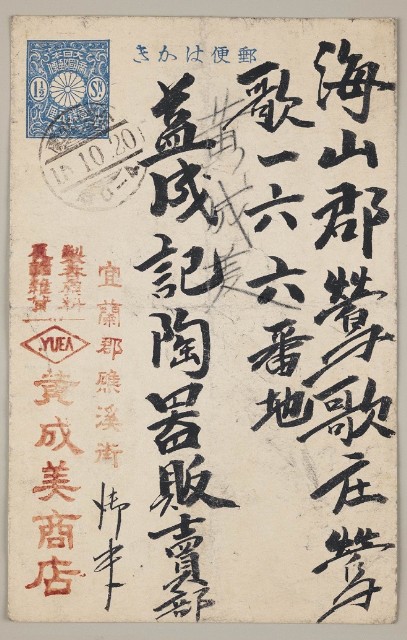 郵便はかき
大日本
帝國郵便
1½ SN
10.20
海山郡鶯歌庄鶯
歌一六六番地
益成記陶器販賣部
黃成美
宜蘭郡礁溪街
YUEA
黃成美商店